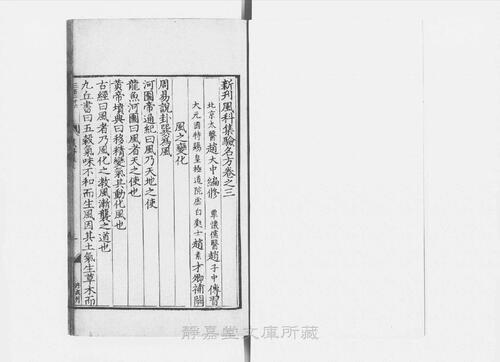 新刊風科集驗名方卷之三
北京太醫趙大中編修
覃懷儒醫趙子中傳習
大元國特賜皇極道院虛白處士趙素才卿補闕
風之變化
周易說卦巽爲風
河圖帝通紀曰風乃天地之使
龍魚河圖曰風者天之使也
黃帝墳典曰移精變氣其動化風也
古經曰風者乃風化之教風漸襲之道也
九丘書曰五穀氣味不和而生風因其土氣生草木而
靜嘉堂文庫所藏